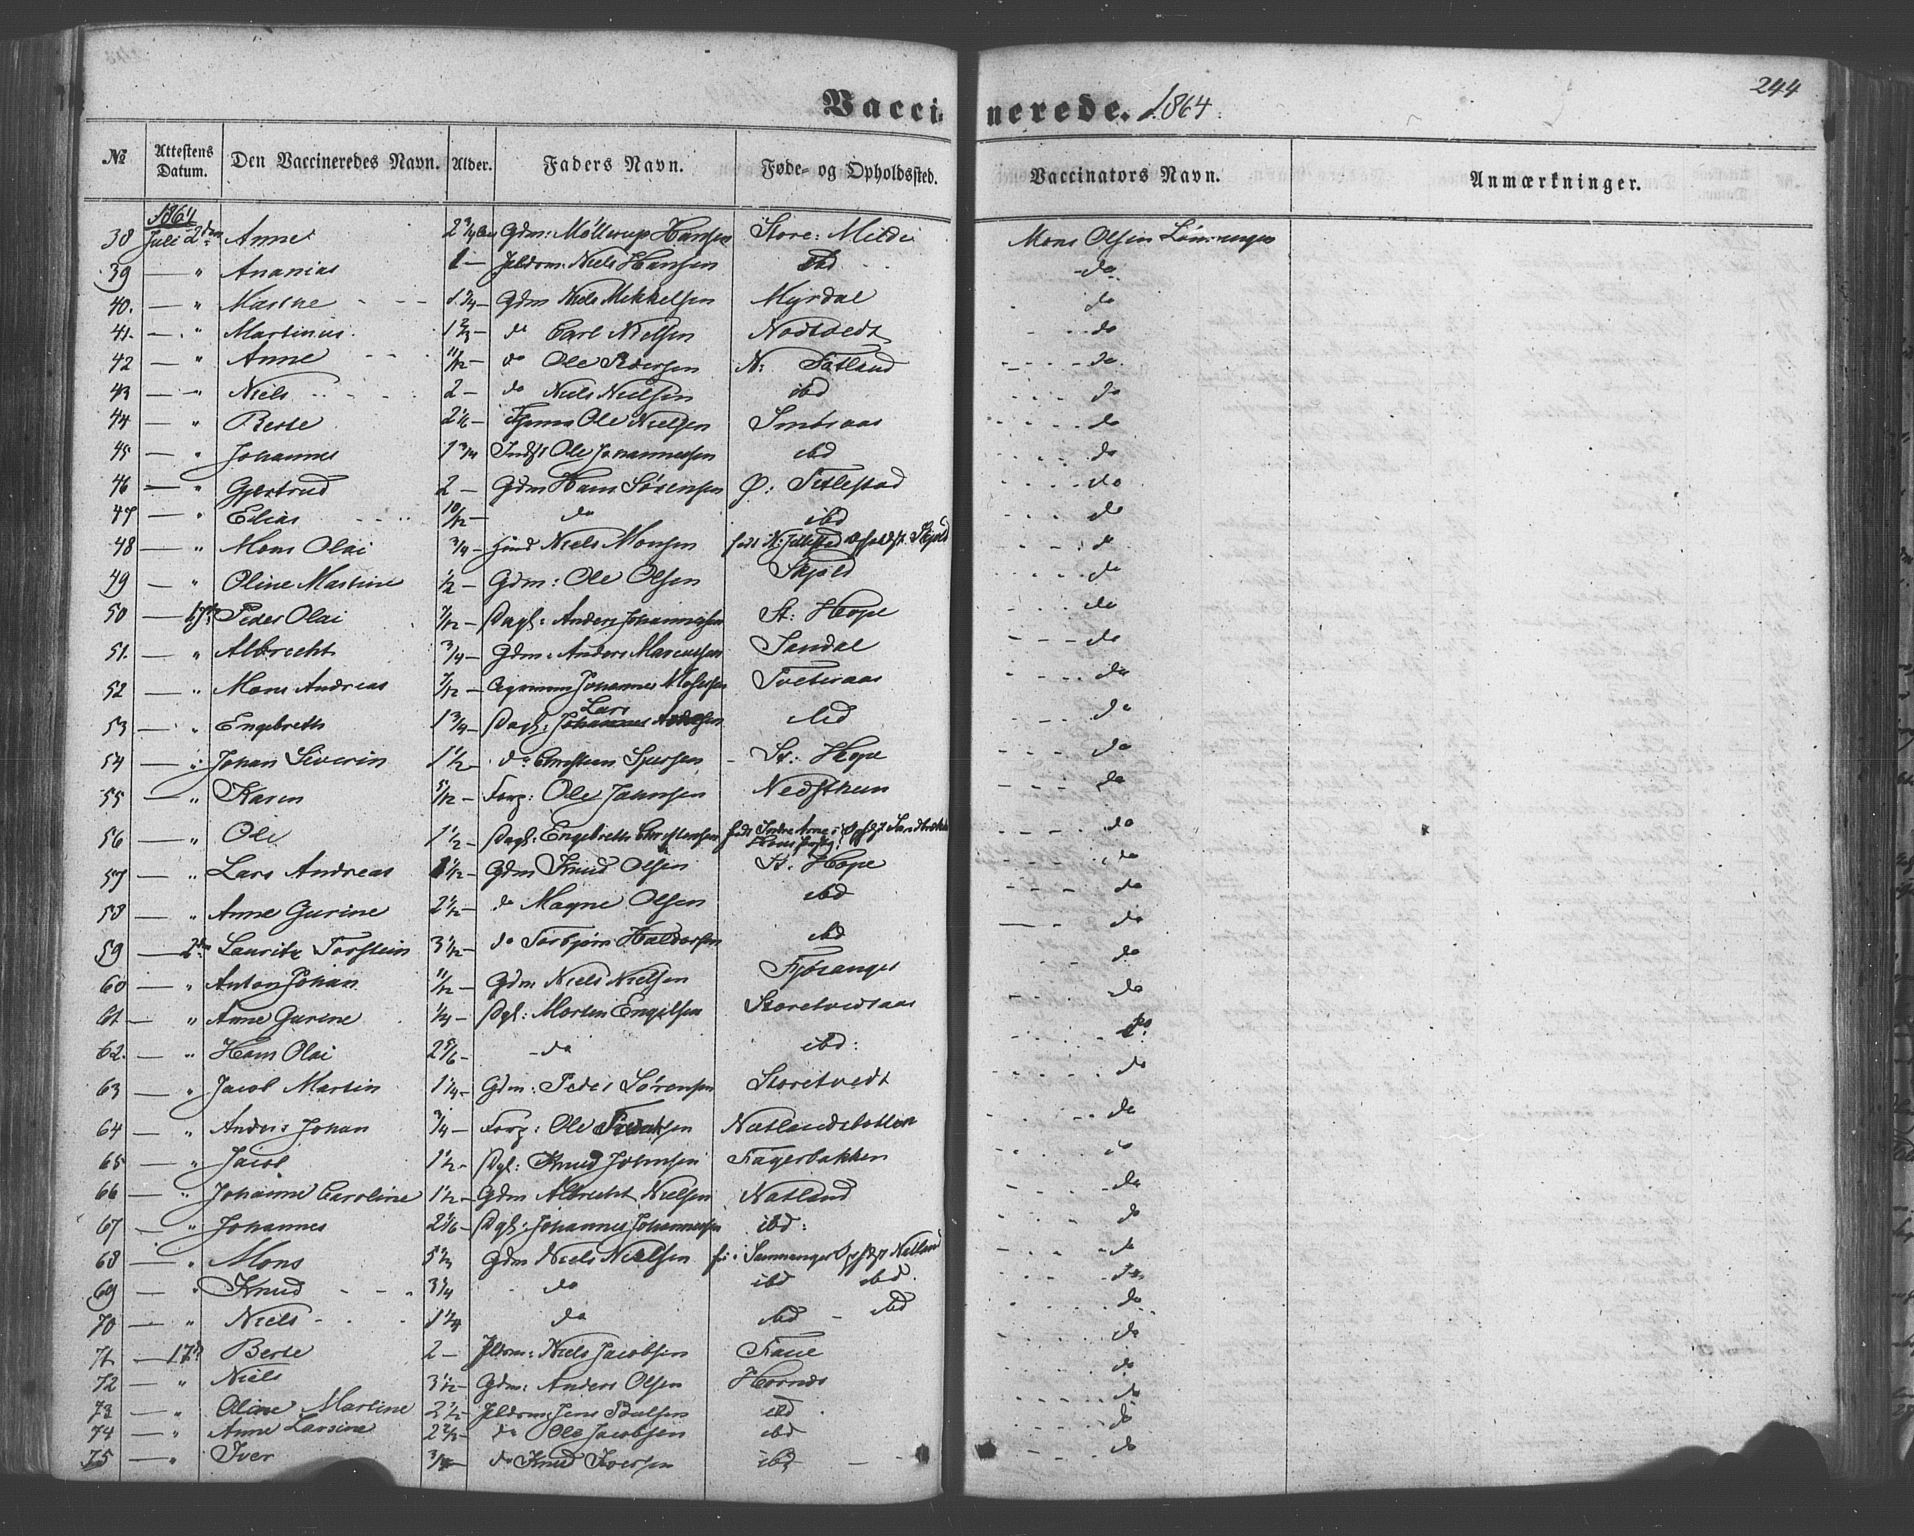 244
Vaccinerede. 1864.
№ Attestens Datum. Den Vaccineredes Navn. Alder. Faders Navn. Føde- og Opholdssted. Vaccinators Navn. Anmærkninger.
1864
38 Juli 2den Anne 2 3/4 Gdm: Möllerup Hansen Store: Milde Mons Olsen
39 — " Ananias 1 — Niels Hansen ibd do
40. — " 1 3/4 — Gdm Niels Mikkelsen Myrdal do
41. — " Martinus 1 2/3 — do Carl Nielsen Nodtvedt do
42 — " Anne 11/12 — do Ole Pedersen N: Sætland do
43 — " Niels 2 — do Niels Nielsen ibd do
44 — " Berte 2 1/6 — Ole Nielsen Smöraas do
45 — " Johannes 1 3/4 Indst Ole Johannessen ibd do
46 — " Gjertrud 2 — Gdm Hans Sörensen Ø: Titlestad do
47 — " Elias 10/12 — do ibd do
48 — " Mons Olai 3/4 — Niels Monsen født N: Titlestad Opholdst. Skjold do
49 — " Oline Martine 1/2 — Gdm: Ole Olsen Skjold do
50 — 17de Peder Olai 7/12 — Pagt: Anders Johannessen St: Hope do
51. — " Albrecht 3/4 — Gdm: Anders Marcussen Sandal do
52 — " Mons Andreas 7/12 — Johannes Mosessen Tveteraas do
53 — " Engebreth 1 3/4 — Pagt: Lars ibd do
54 — " Johan Severin 1 1/2 — do St: Hope do
55 — " Karen 5/12 — Forp: Ole Johnsen Nedsttun do
56 — " Ole 1 1/2 Pagt: Engebreth Christensen do
57 — " Lars Andreas 1/12 — Gdm Knud Olsen St: Hope do
58 — " Anne Gurine 2 1/12 — do Magne Olsen ibd do
59 — 2den Lauritz Torstein 3 1/12 — do Torbjörn Haldorsen ibd do
60 — " Anton Johan 11/12 — Gdm Niels Nielsen Fjösanger do
61 — " Anne Gurine 1/4 — Pgt: Morten Engelsen Storetvedtaas do
62. — " Hans Olai 2 5/6 — do ibd: do
63 — " Jacob Martin 1 1/4 — Gdm: Peder Sörensen Storetvedt do
64 — " Anders Johan 3/4 — Forp: Ole Natlandsbotten do
65 — " Jacob 1 1/2 — Pgt: Knud Johnsen Fagerbakken do
66 — " Johanne Caroline 1 1/2 — Gdm Albrecht Nielsen Natland do
67 — " Johannes 2 1/6 — Pgt: Johannes Johannessen ibd: do
68 — " Mons 5 1/2 Gdm Niels Nielsen Samnanger Natland do
69 — " Knud 3 1/4 do ibd ibd. do
70 — " Niels 1 1/4 do ibd — ibd do
71. — 17de Berte 2 — Niels Jacobsen do
72 — " Niels 3 1/2 — Gdm: Anders Olsen Hornæs do
73 — " Oline Martine 2 1/2 — Jens ibd do
74 — " Anne Larsine 2 2/3 — do Ole Jacobsen ibd do
75 — " Iver 3/4 — do Knud Iversen ibd do